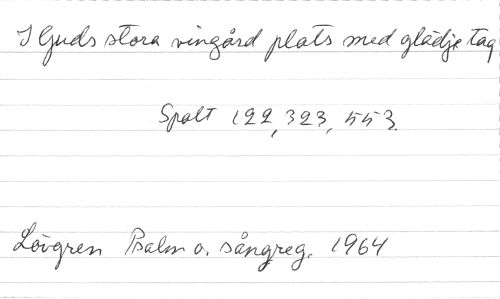 I Guds stora vingård plats med glädje tag
Spalt 122, 323, 553.
Lövgren Psalm o. sångreg. 1964